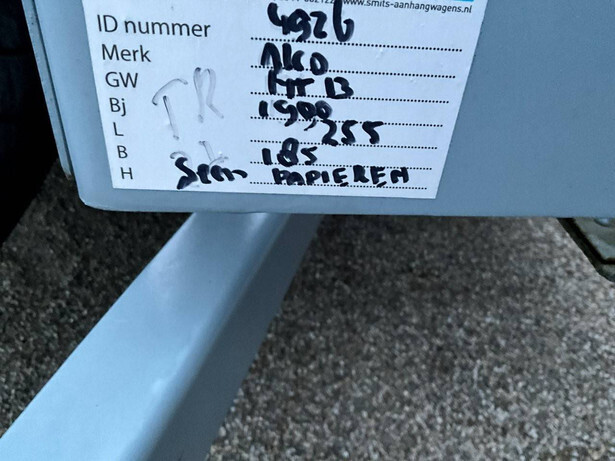 www.smits-aanhangwagens.nl
ID nummer 4926
Merk
GW
Bj 1900
L 255
B 185
H PAPIEREN
TR